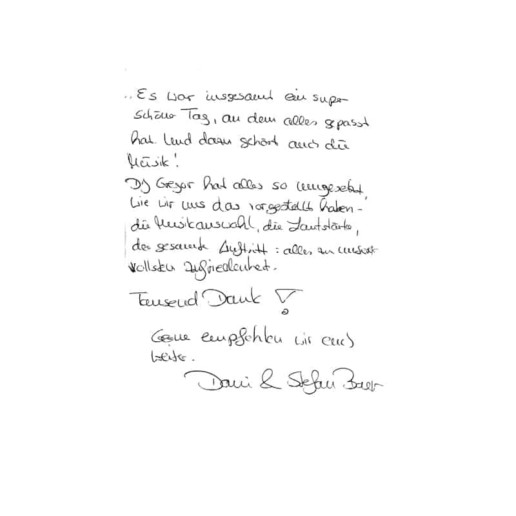 ..Es war insgesamt ein super
schöner Tag, an dem alles gepasst
hat. Und dazu gehört auch die
Musik!
DJ Gregor hat alles so umgesetzt,
wie wir uns das vorgestellt haben -
die Musikauswahl, die Lautstärke,
der gesamte Auftritt: alles zu unserer
vollsten Zufriedenheit.
Tausend Dank!
Gerne empfehlen wir euch
weiter.
Dani & Stefan